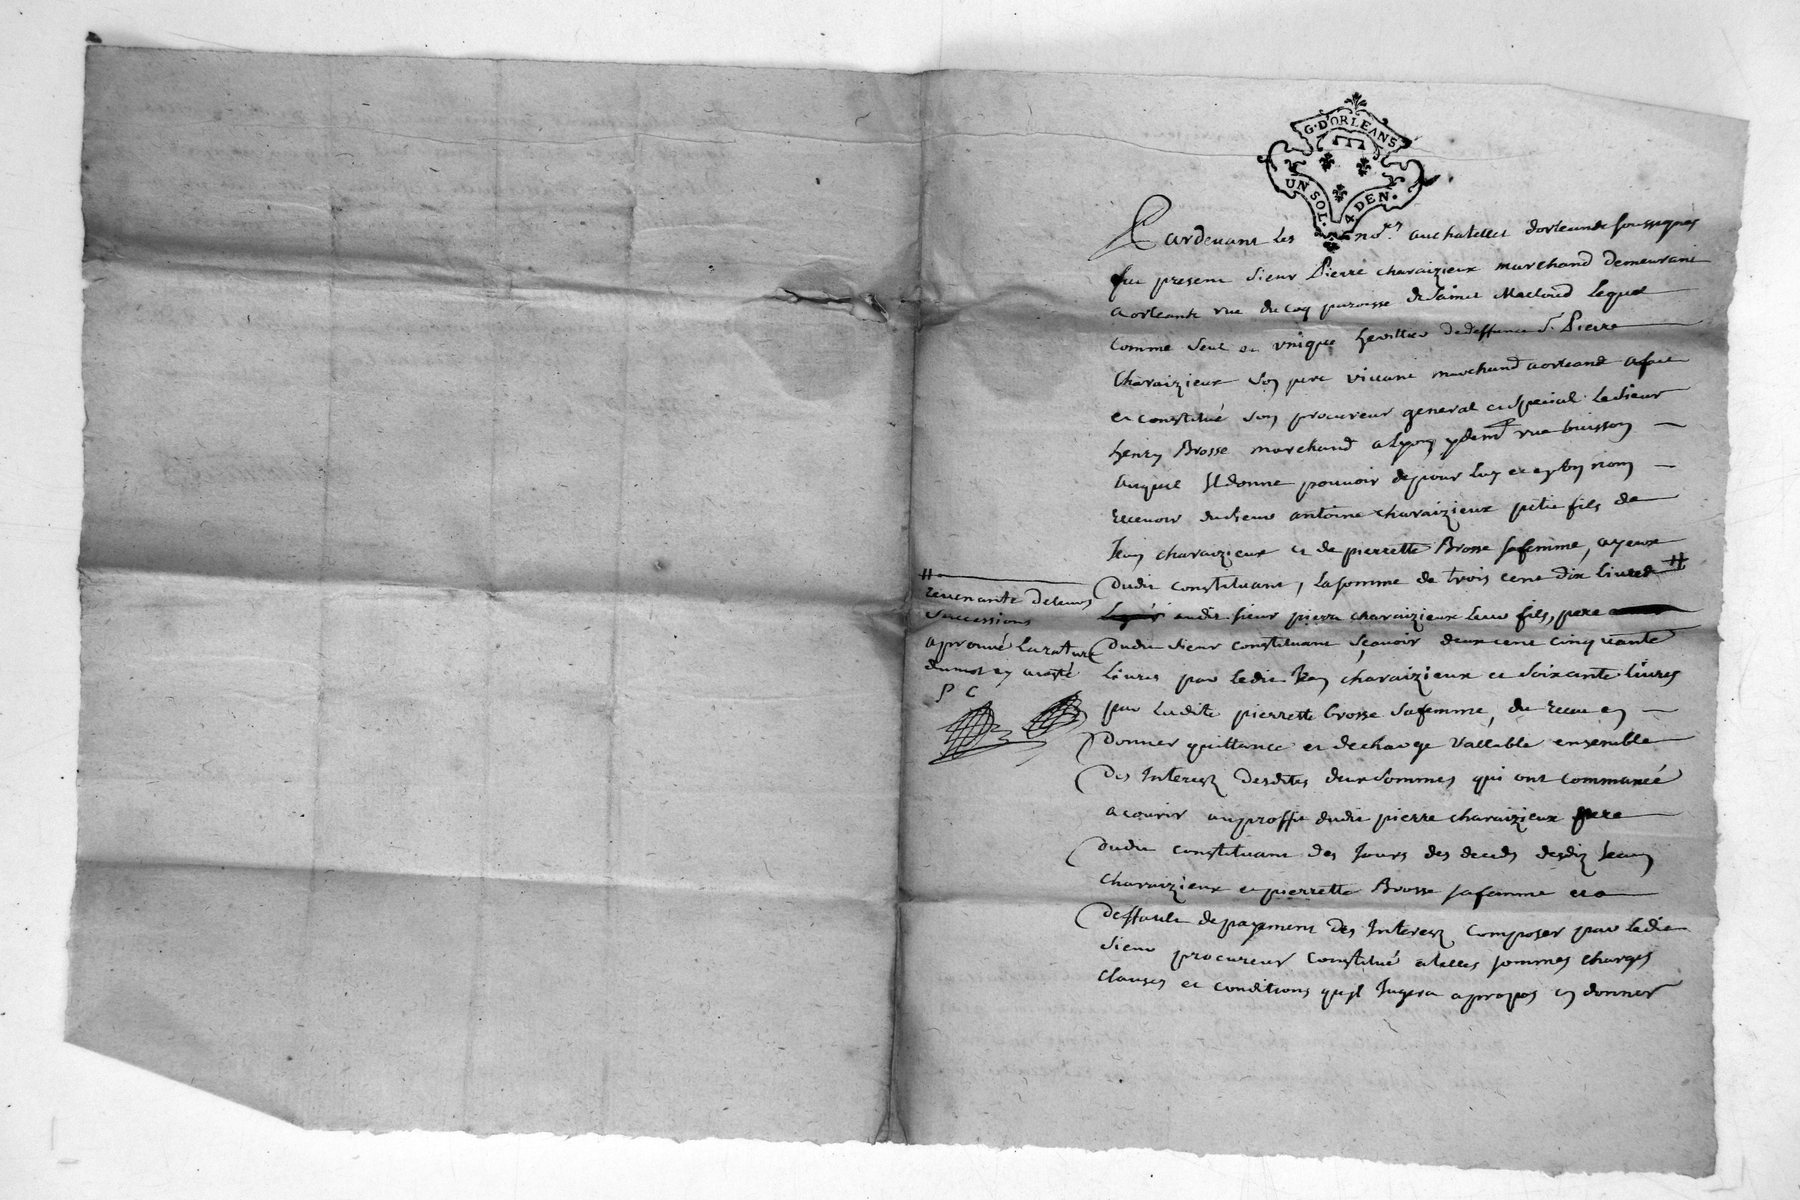 G. D'ORLEANS
UN SOL. 4 DEN.
Pardevant les no.res au chatelet dorleans soussignes
fut present sieur Pierre charaizieux marchand demeurant
a orleans rue du coq paroisse de saint Macloud lequel
comme seul et unique heritier de deffunct Sr. Pierre
Charaizieux son pere vivant marchand a orleans a fait
et constitué son procureur general et special le sieur
henry Brosse marchand a lyon y demt rue buisson
auquel Il donne pouvoir de pour luy et en son nom
recevoir du sieur antoine charaizieux petit fils de
Jean charaizieux et de pierrette Brosse sa femme, ayeux
dudit constituant, la somme de trois cent dix livres #
audit sieur pierre charaizieux leur fils, pere
dudit sieur constituant, sçavoir deux cent cinquante
livres par ledit Jean charaizieux et soixante livres
par ladite pierrette brosse sa femme, du receu en
donner quittance et decharge vallable ensemble
des Interest desdites deux sommes qui ont commancé
a courir au proffit dudit pierre charaizieux pere
dudit constituant des Jours des deceds desdiz Jean
charaizieux et pierrette Brosse sa femme et a
deffault de payement des Interest composer par ledit
sieur procureur constitué a telles sommes charges
clauses et conditions qu'jl Jugera a propos en donner
# revenante de leurs
successions
aprouvé la rature
du mot
P C